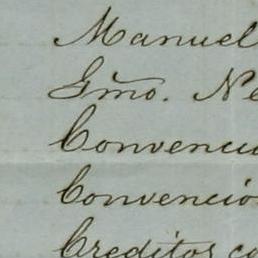 Manuel
Gmo. Ne
Convenci
Convenció
Creditos co